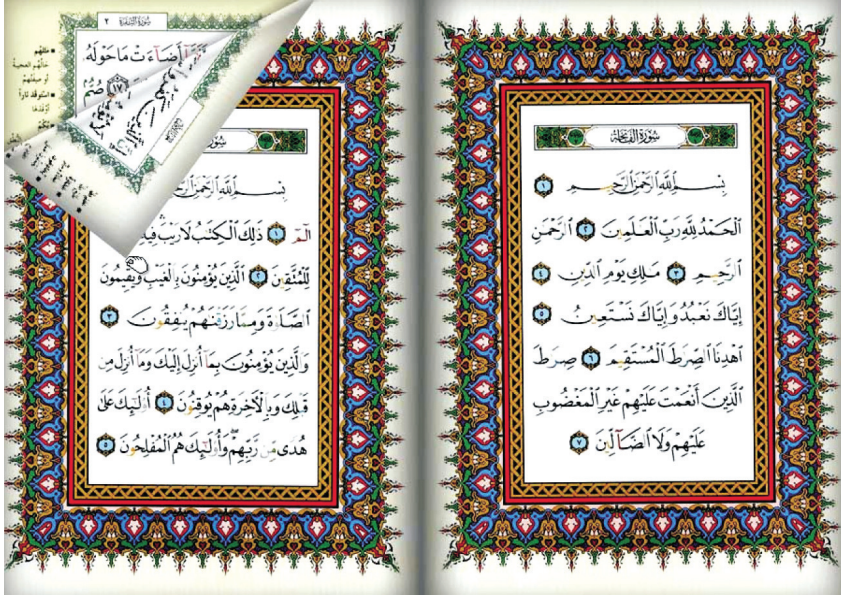 سُورَةُ الْفَاتِحَةِ
بِسْمِ ٱللَّهِ ٱلرَّحْمَٰنِ ٱلرَّحِيمِ ١
ٱلْحَمْدُ لِلَّهِ رَبِّ ٱلْعَٰلَمِينَ ٢ ٱلرَّحْمَٰنِ
ٱلرَّحِيمِ ٣ مَٰلِكِ يَوْمِ ٱلدِّينِ ٤
إِيَّاكَ نَعْبُدُ وَإِيَّاكَ نَسْتَعِينُ ٥
ٱهْدِنَا ٱلصِّرَٰطَ ٱلْمُسْتَقِيمَ ٦ صِرَٰطَ
ٱلَّذِينَ أَنْعَمْتَ عَلَيْهِمْ غَيْرِ ٱلْمَغْضُوبِ
عَلَيْهِمْ وَلَا ٱلضَّآلِّينَ ٧
بِسْمِ ٱللَّهِ ٱلرَّحْمَٰنِ
الٓمٓ ١ ذَٰلِكَ ٱلْكِتَٰبُ لَا رَيْبَ فِيهِ
لِّلْمُتَّقِينَ ٢ ٱلَّذِينَ يُؤْمِنُونَ بِٱلْغَيْبِ وَيُقِيمُونَ
ٱلصَّلَوٰةَ وَمِمَّا رَزَقْنَٰهُمْ يُنفِقُونَ ٣
وَٱلَّذِينَ يُؤْمِنُونَ بِمَآ أُنزِلَ إِلَيْكَ وَمَآ أُنزِلَ مِن
قَبْلِكَ وَبِٱلْءَاخِرَةِ هُمْ يُوقِنُونَ ٤ أُو۟لَٰٓئِكَ عَلَىٰ
هُدًى مِّن رَّبِّهِمْ وَأُو۟لَٰٓئِكَ هُمُ ٱلْمُفْلِحُونَ ٥
سُورَةُ الْبَقَرَةِ ٢
أَضَآءَتْ مَا حَوْلَهُۥ
١٧ صُمٌّۢ